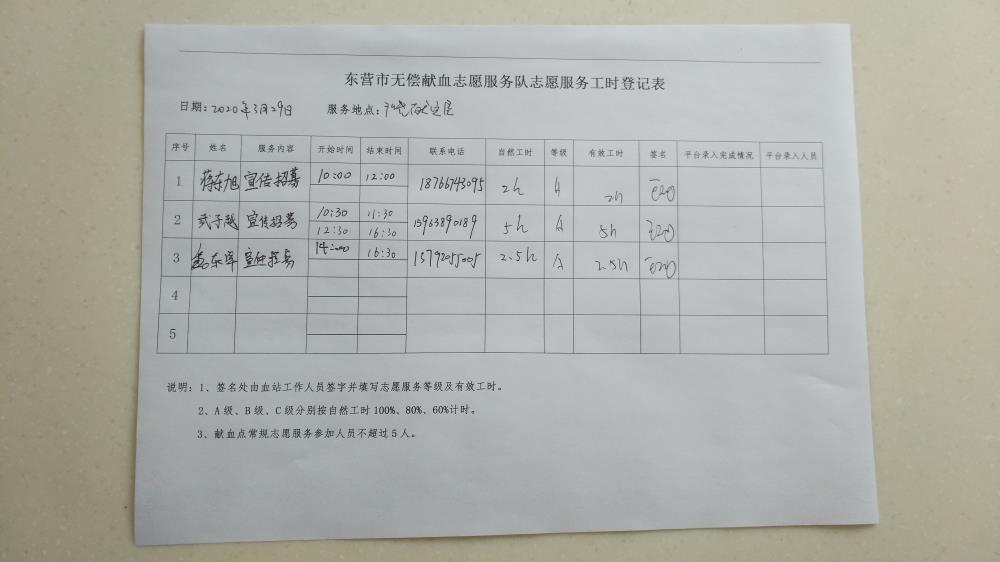 东营市无偿献血志愿服务队志愿服务工时登记表
日期：2020年3月29日 服务地点：
序号 姓名 服务内容 开始时间 结束时间 联系电话 当然工时 等级 有效工时 签名 平台录入完成情况 平台录入人员
1 蒋东旭 宣传招募 10:00 12:00 18766743095 2h A 2h
2 武子越 宣传招募 10:30 11:30 15963890189 5h A 5h
12:30 16:30
3 东军 宣传招募 14:00 16:30 13792055005 2.5h A 2.5h
4
5
说明：1、签名处由血站工作人员签字并填写志愿服务等级及有效工时。
2、A级、B级、C级分别按自然工时100%、80%、60%计时。
3、献血点常规志愿服务参加人员不超过5人。